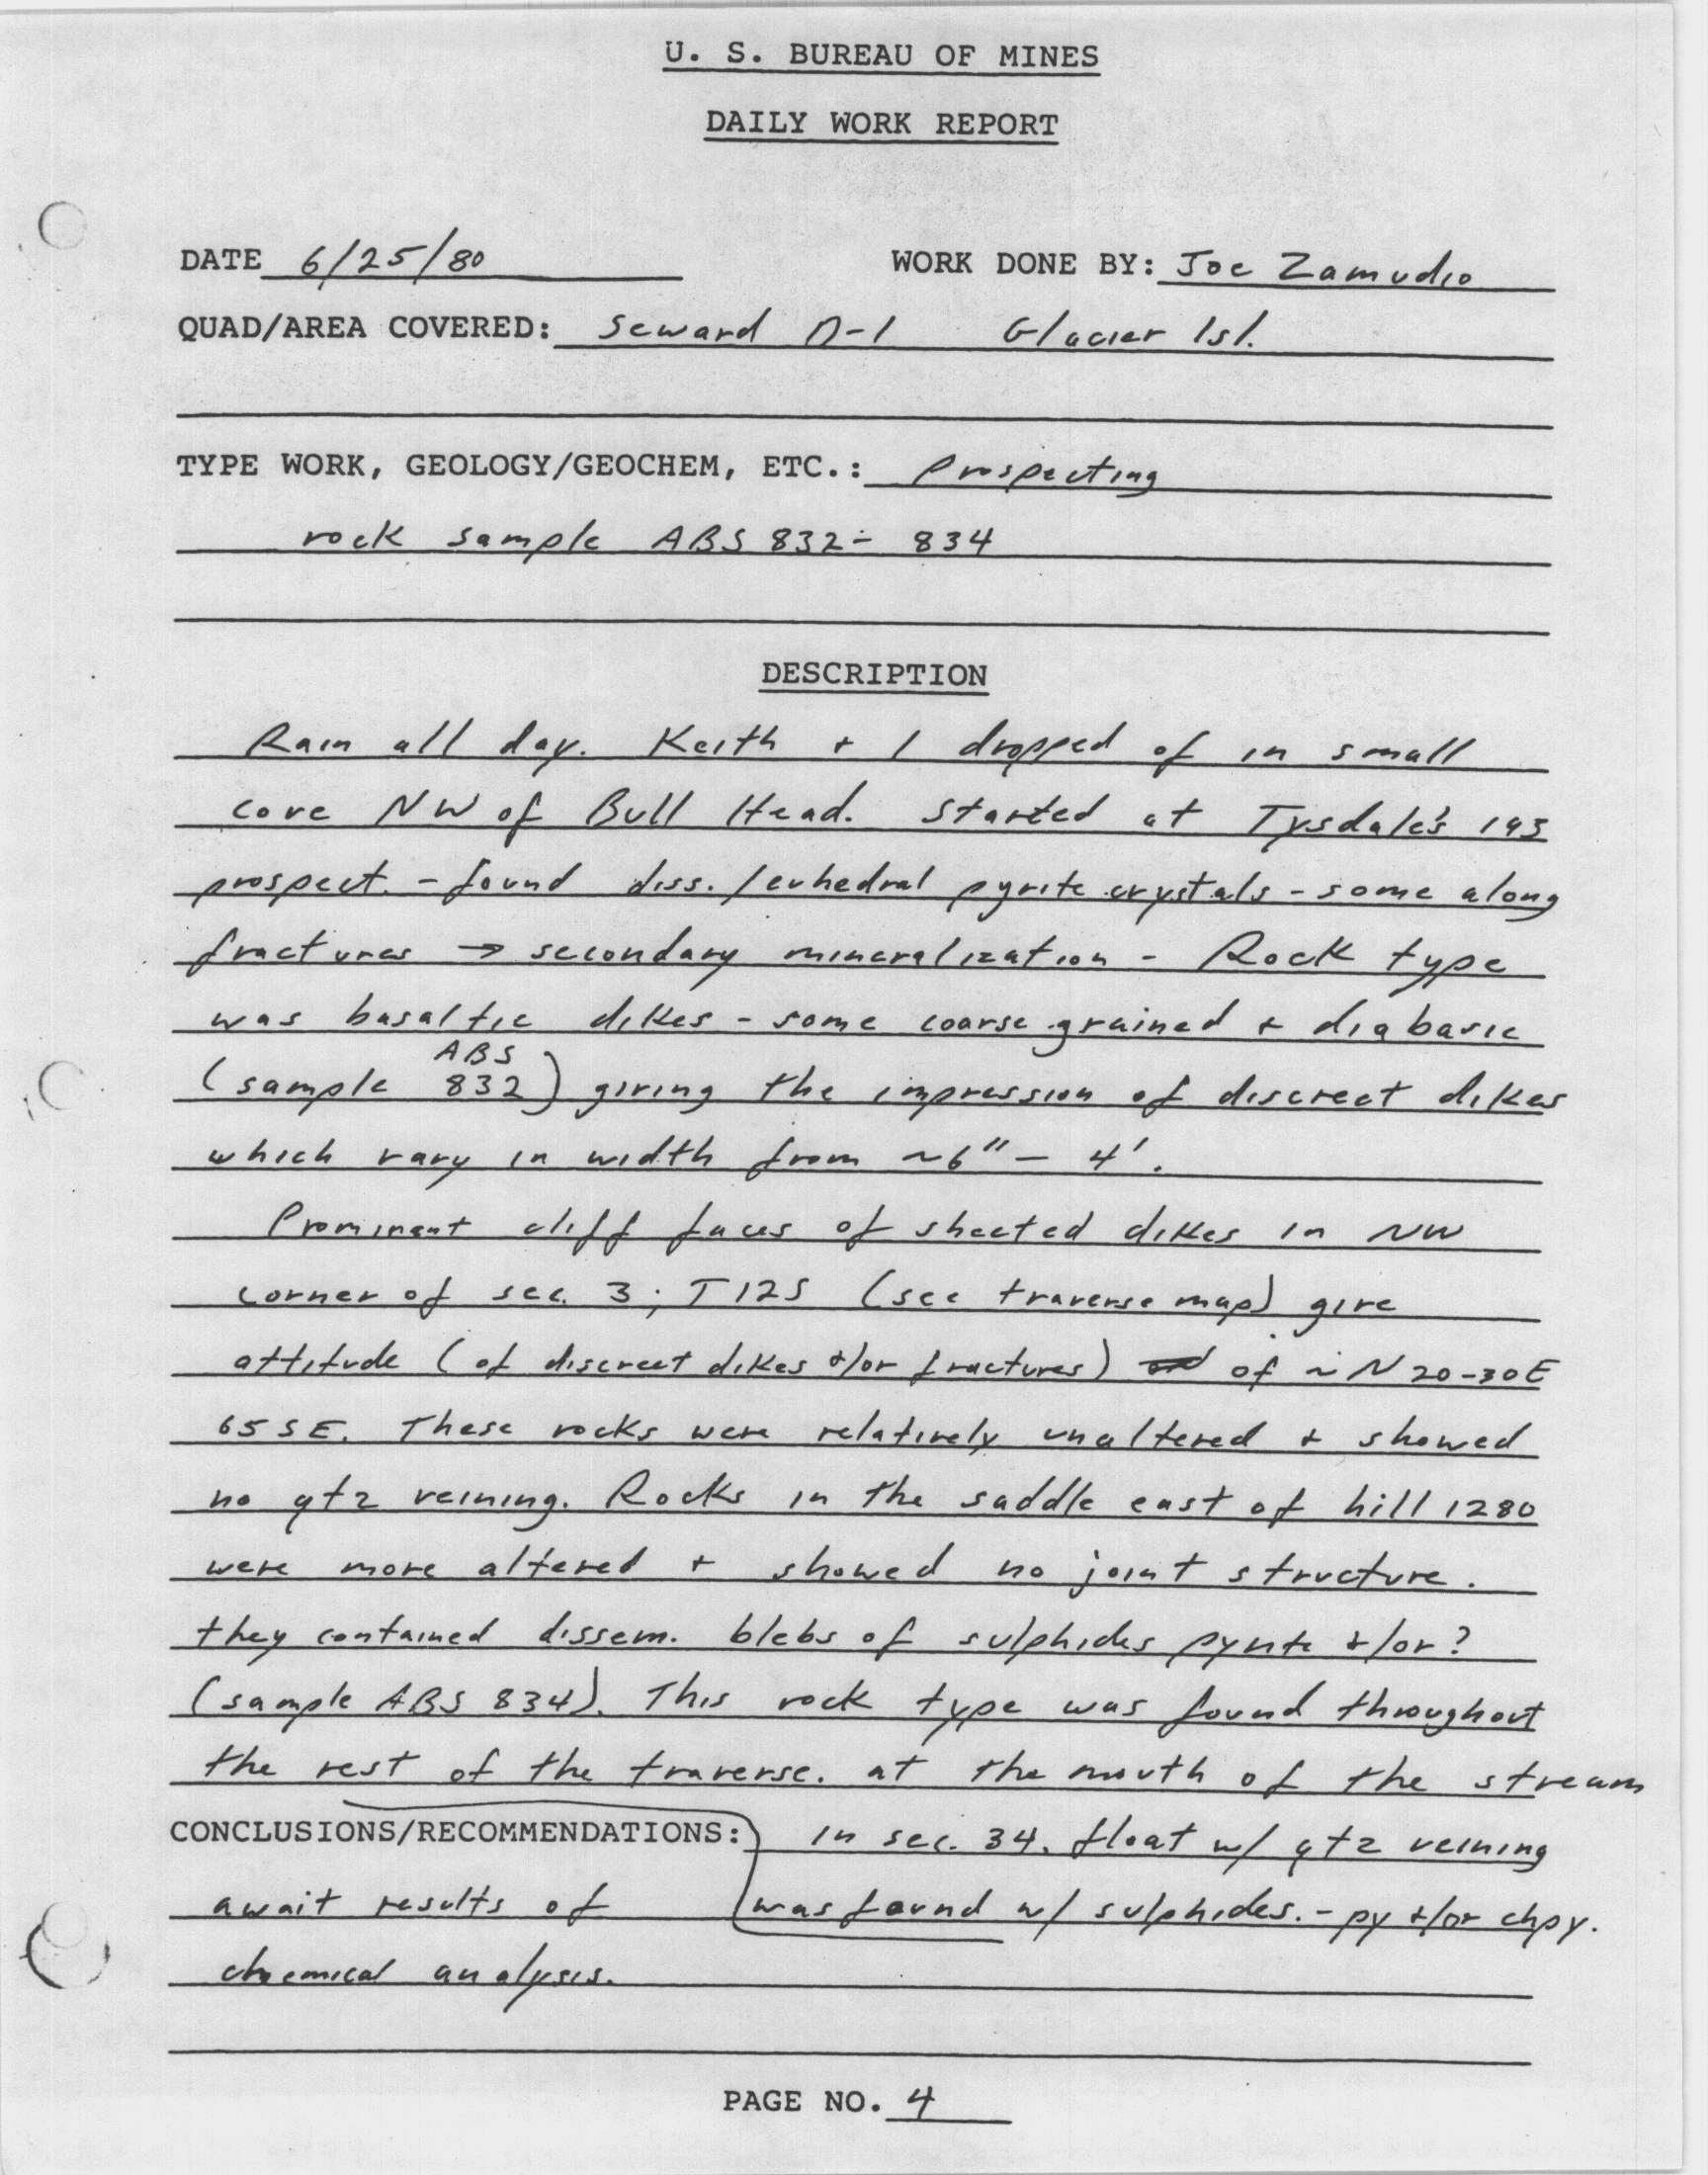 U. S. BUREAU OF MINES
DAILY WORK REPORT
DATE 6/25/80 WORK DONE BY: Joe Zamudio
QUAD/AREA COVERED: Seward D-1 Glacier Isl.
TYPE WORK, GEOLOGY/GEOCHEM, ETC.: Prospecting
rock sample ABS 832 - 834
DESCRIPTION
Rain all day. Keith + I dropped of in small
cove NW of Bull Head. Started at Tysdale's 193
prospect. - found diss./euhedral pyrite crystals - some along
fractures → secondary mineralization - Rock type
was basaltic dikes - some coarse grained + diabasic
ABS
(sample 832) giving the impression of discreet dikes
which vary in width from ~6" - 4'.
Prominent cliff faces of sheeted dikes in NW
corner of sec. 3; T12S (see traverse map) give
attitude (of discreet dikes +/or fractures) of ~ N 20-30E
65 SE. These rocks were relatively unaltered + showed
no qtz veining. Rocks in the saddle east of hill 1280
were more altered + showed no joint structure.
they contained dissem. blebs of sulphides pyrite +/or?
(sample ABS 834). This rock type was found throughout
the rest of the traverse. at the mouth of the stream
CONCLUSIONS/RECOMMENDATIONS: in sec. 34. float w/ qtz veining
await results of was found w/ sulphides. - py +/or chpy.
chemical analysis.
PAGE NO. 4